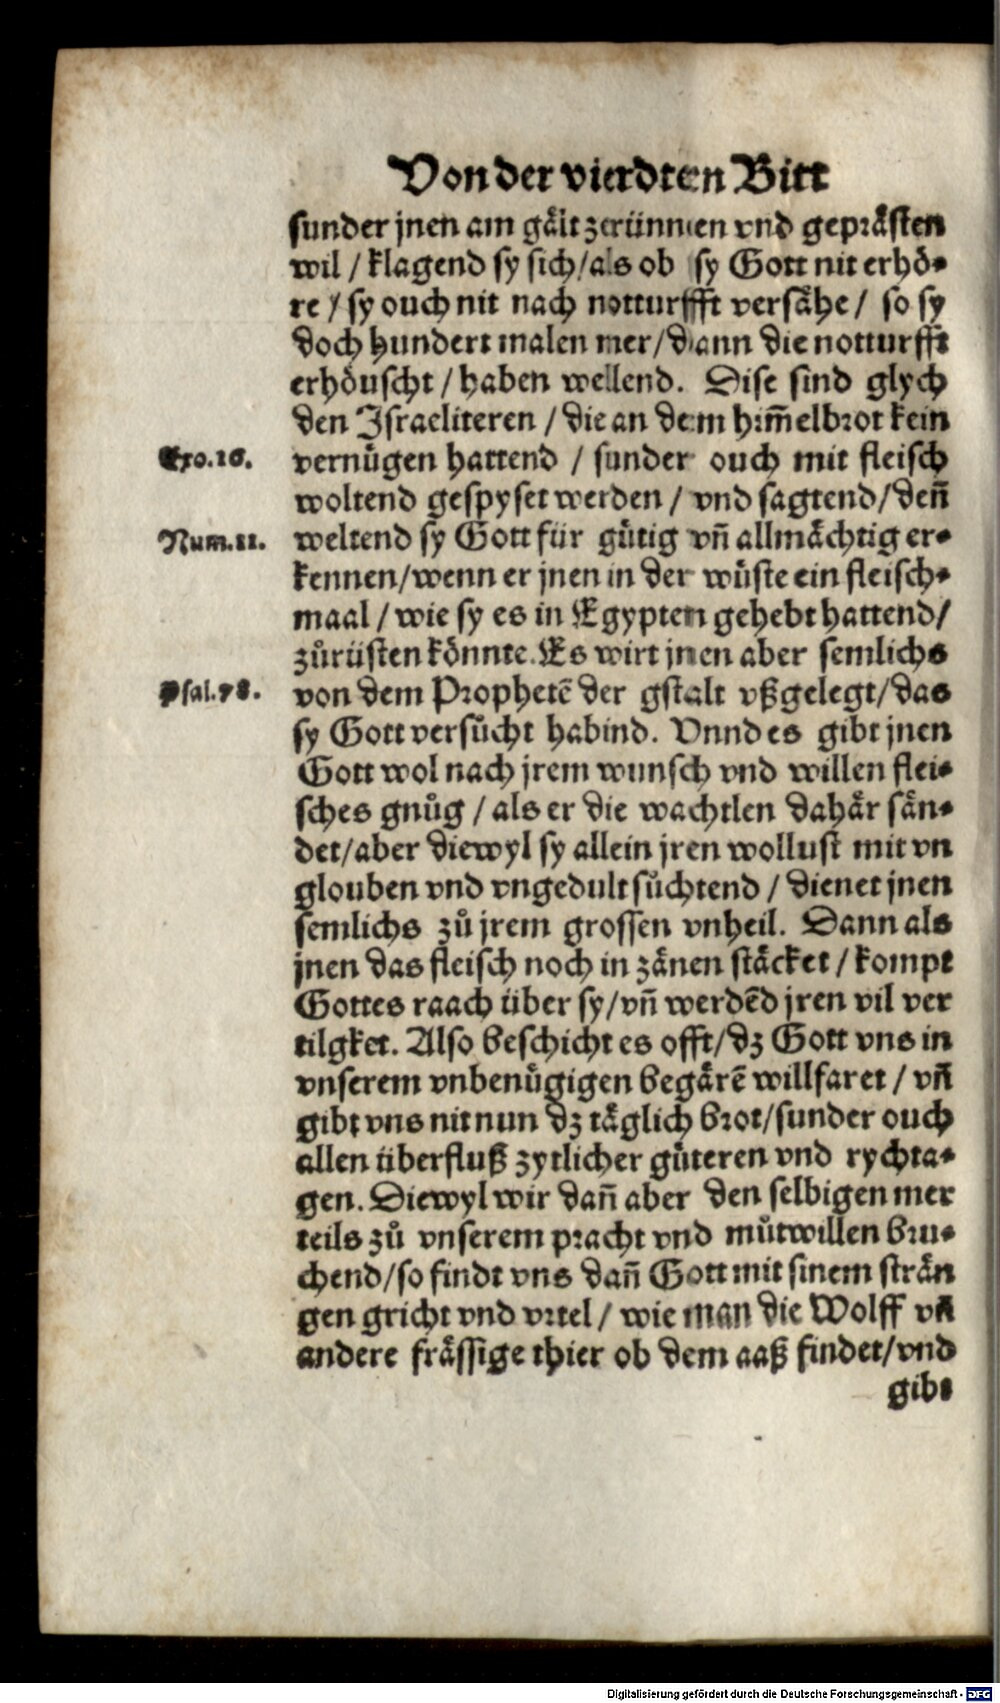 Von der vierdten Bitt
sunder jnen am gält zerünnen vnd gepräſten
wil / klagend ſy ſich / als ob ſy Gott nit erhö⸗
re / ſy ouch nit nach notturfft verſähe / ſo ſy
doch hundert malen mer / dann die notturfft
erhöuſcht / haben wellend. Diſe ſind glych
den Iſraeliteren / die an dem him̃elbrot kein
Exo.16. vernuͤgen hattend / ſunder ouch mit fleiſch
woltend geſpyſet werden / vnd ſagtend / deñ
Num.11. weltend ſy Gott für guͤtig vñ allmächtig er⸗
kennen / wenn er jnen in der wuͤſte ein fleiſch⸗
maal / wie ſy es in Egypten gehebt hattend /
zuͦrüſten könnte. Es wirt jnen aber ſemlichs
Pſal.78. von dem Prophetẽ der gſtalt vßgelegt / das
ſy Gott verſuͦcht habind. Vnnd es gibt jnen
Gott wol nach jrem wunſch vnd willen flei⸗
ſches gnuͦg / als er die wachtlen dahär ſän⸗
det / aber diewyl ſy allein jren wolluſt mit vn
glouben vnd vngedult ſuͦchtend / dienet jnen
ſemlichs zuͦ jrem groſſen vnheil. Dann als
jnen das fleiſch noch in zänen ſtäcket / kompt
Gottes raach über ſy / vñ werdẽd jren vil ver
tilgket. Alſo beſchicht es offt / dz Gott vns in
vnſerem vnbenuͤgigen begärẽ willfaret / vñ
gibt vns nit nun dz täglich brot / ſunder ouch
allen überfluß zytlicher guͤteren vnd rychta⸗
gen. Diewyl wir dañ aber den ſelbigen mer
teils zuͦ vnſerem pracht vnd muͦtwillen bru⸗
chend / ſo findt vns dañ Gott mit ſinem ſträn
gen gricht vnd vrtel / wie man die Wolff vñ
andere fräſſige thier ob dem aaß findet / vnd
gibt
Digitalisierung gefördert durch die Deutsche Forschungsgemeinschaft - DFG